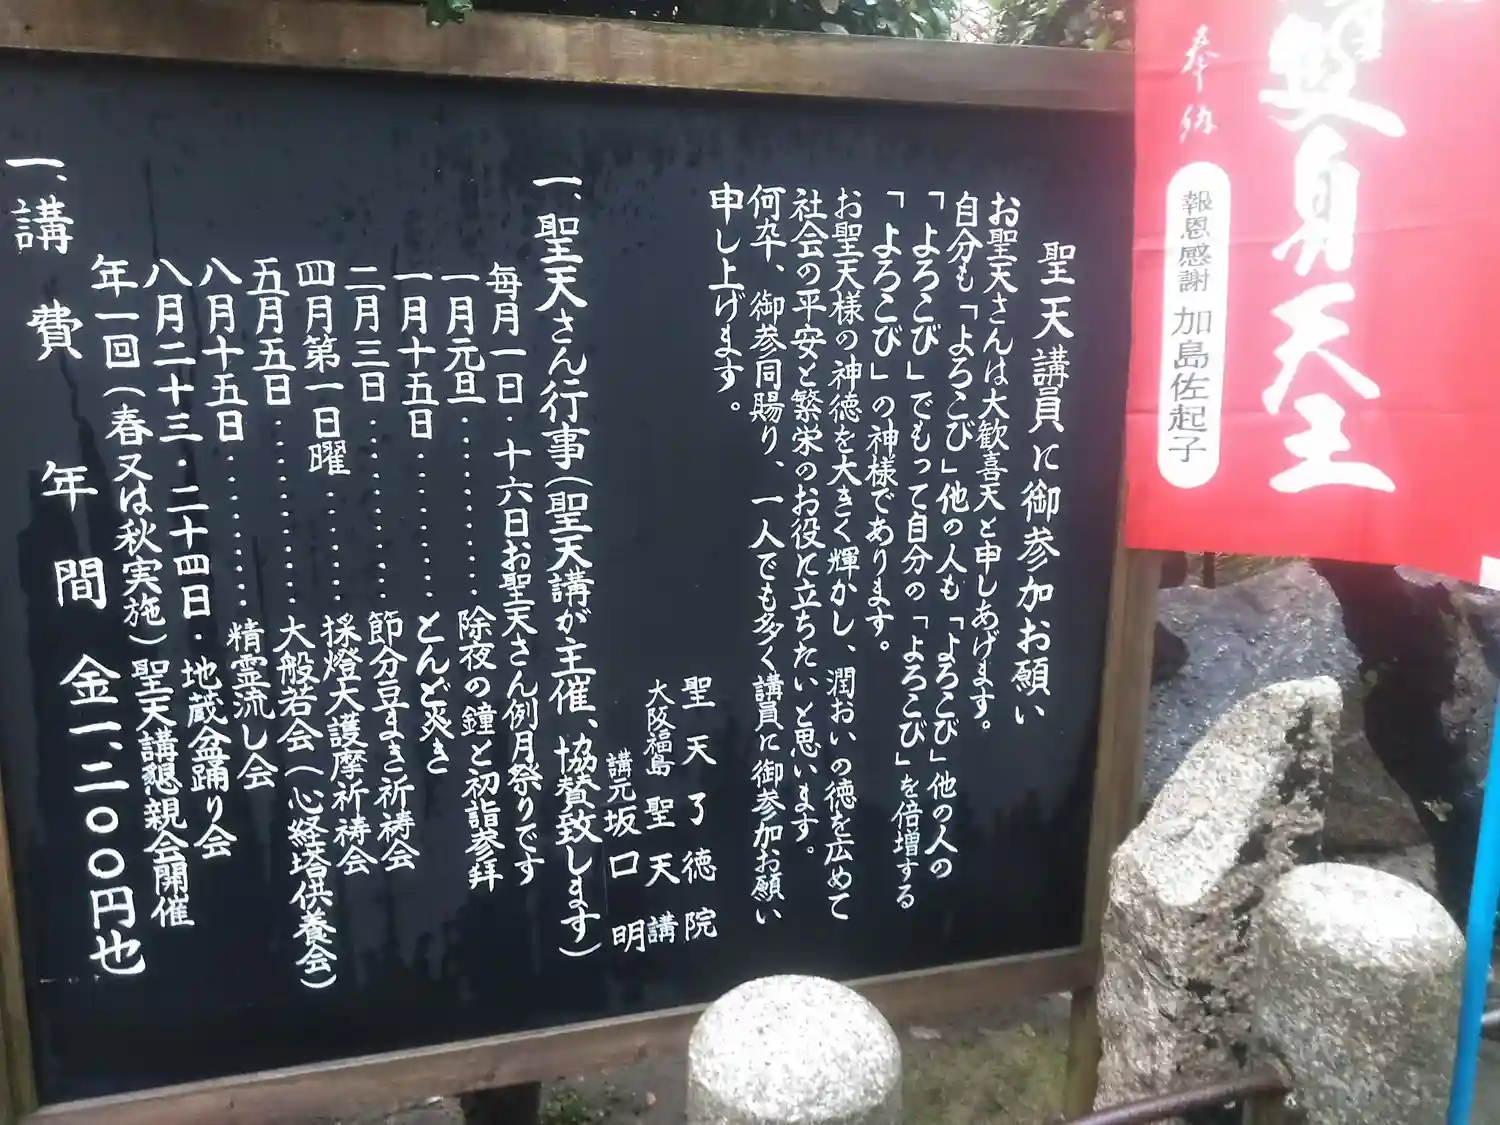 雙身天王
奉納
報恩感謝 加島佐起子
聖天講員に御参加お願い
お聖天さんは大歓喜天と申しあげます。
自分も「よろこび」他の人も「よろこび」他の人の
「よろこび」でもって自分の「よろこび」を倍増する
「よろこび」の神様であります。
お聖天様の神徳を大きく輝かし、潤おいの徳を広めて
社会の平安と繁栄のお役に立ちたいと思います。
何卒、御参同賜り、一人でも多く講員に御参加お願い
申し上げます。
聖天了徳院
大阪福島聖天講
講元坂口明
一、聖天さん行事(聖天講が主催、協賛致します)
毎月一日・十六日お聖天さん例月祭りです
一月元旦・・・・・・・・・除夜の鐘と初詣参拝
一月十五日・・・・・・・・とんど炎き
二月三日・・・・・・・・・節分豆まき祈祷会
四月第一日曜・・・・・・採燈大護摩祈祷会
五月五日・・・・・・・・・大般若会(心経塔供養会)
八月十五日・・・・・・・・精霊流し会
八月二十三・二十四日・地蔵盆踊り会
年一回(春又は秋実施)聖天講懇親会開催
一、講費年間金一、二〇〇円也